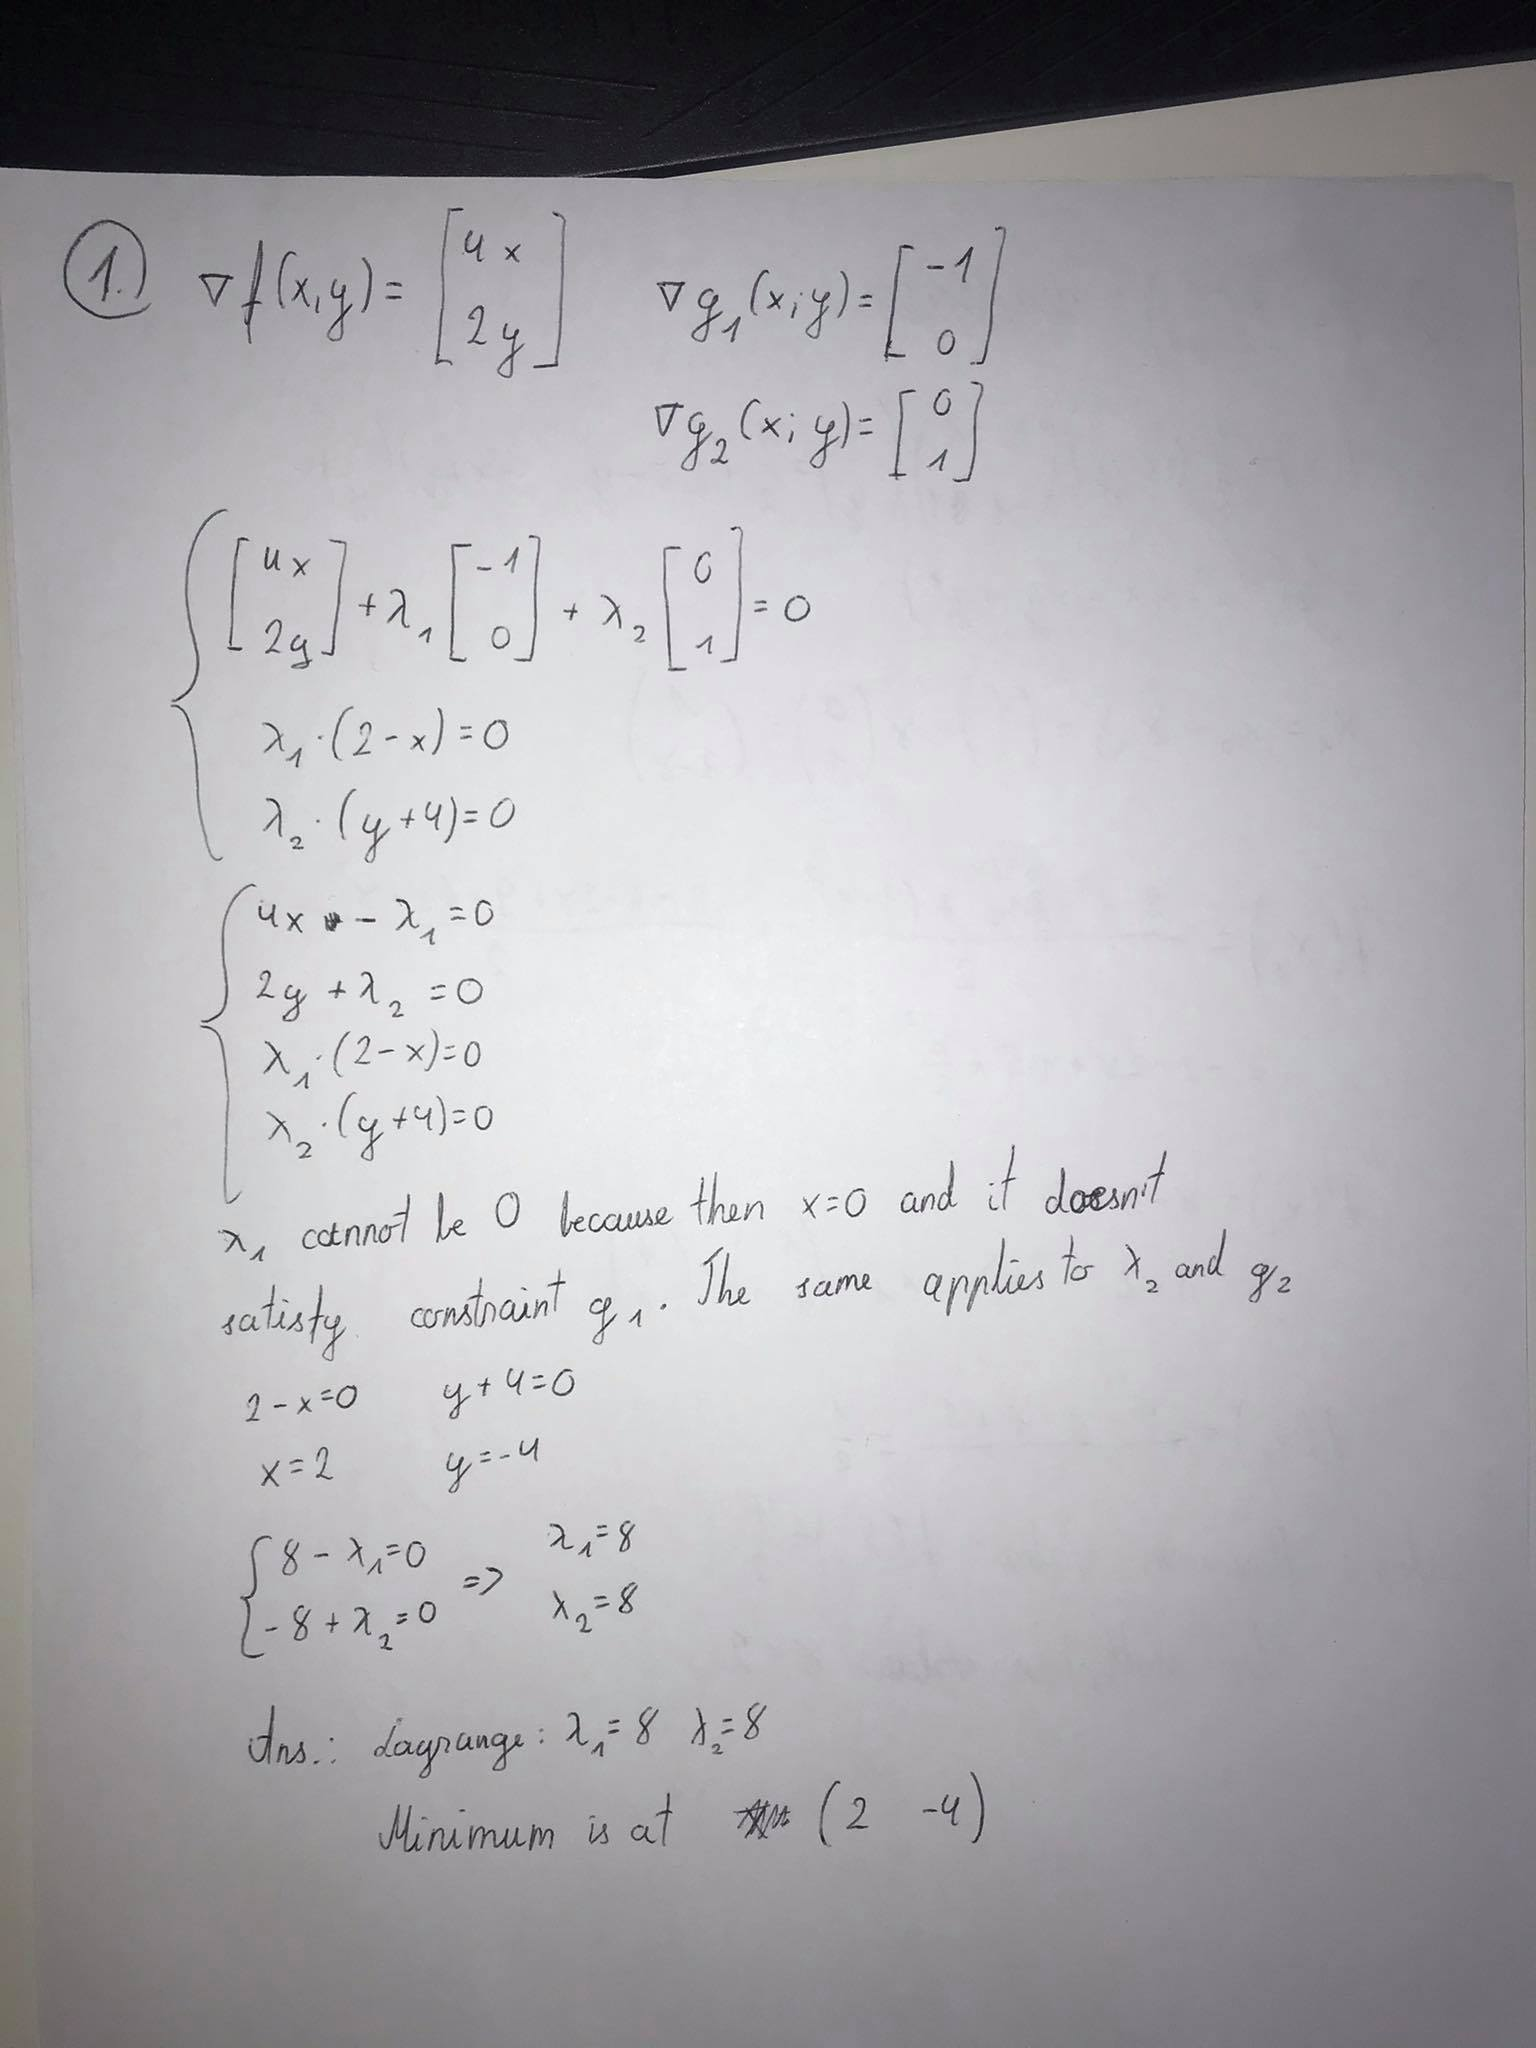 1. ∇f(x,y)= [4x 2y] ∇g₁(x;y)= [-1 0]
∇g₂(x;y)= [0 1]
[4x 2y] + λ₁ [-1 0] + λ₂ [0 1] = 0
λ₁·(2-x)=0
λ₂·(y+4)=0
4x - λ₁ =0
2y + λ₂ =0
λ₁·(2-x)=0
λ₂·(y+4)=0
λ₁ cannot be 0 because then x=0 and it doesn't
satisfy constraint g₁. The same applies to λ₂ and g₂
2-x=0 y+4=0
x=2 y=-4
8-λ₁=0 => λ₁=8
-8+λ₂=0 λ₂=8
Ans.: Lagrange: λ₁=8 λ₂=8
Minimum is at (2 -4)